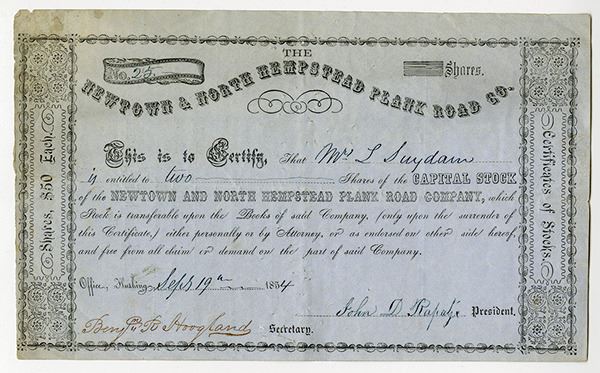 THE
No. 25
Shares.
NEWTOWN & NORTH HEMPSTEAD PLANK ROAD CO.
This is to Certify, That Mrs L Suydam
is entitled to two Shares of the CAPITAL STOCK
of the NEWTOWN AND NORTH HEMPSTEAD PLANK ROAD COMPANY, which
Stock is transferable upon the Books of said Company, (only upon the surrender of
this Certificate,) either personally or by Attorney, or as endorsed on other side hereof,
and free from all claim or demand on the part of said Company.
Office, Flushing Sept 19th 1854
John D Rapalje President.
Benjn. Hoogland Secretary.
Shares, $50 Each.
Certificates of Stocks.